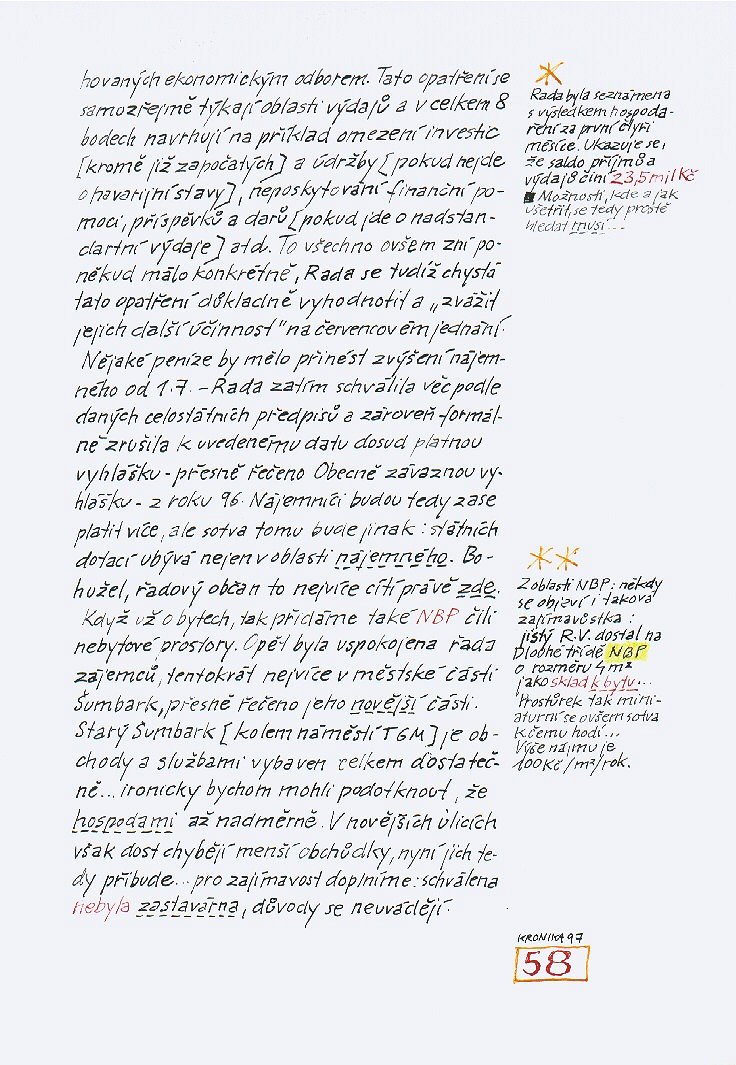 hovaných ekonomickým odborem. Tato opatření se
samozřejmě týkají oblasti výdajů a v celkem 8
bodech navrhují na příklad omezení investic
[kromě již započatých] a údržby [pokud nejde
o havarijní stavy], neposkytování finanční po-
moci, příspěvků a darů [pokud jde o nadstan-
dartní výdaje] atd. To všechno ovšem zní po-
někud málo konkrétně, Rada se tudíž chystá
tato opatření důkladně vyhodnotit a „zvážit
jejich další účinnost" na červencovém jednání.
Nějaké peníze by mělo přinést zvýšení nájem-
ného od 1.7. – Rada zatím schválila věc podle
daných celostátních předpisů a zároveň formál-
ně zrušila k uvedenému datu dosud platnou
vyhlášku - přesně řečeno Obecně závaznou vy-
hlášku - z roku 96. Nájemníci budou tedy zase
platit více, ale sotva tomu bude jinak: státních
dotací ubývá nejen v oblasti nájemného. Bo-
hužel, řadový občan to nejvíce cítí právě zde.
Když už o bytech, tak přidáme také NBP čili
nebytové prostory. Opět byla uspokojena řada
zájemců, tentokrát nejvíce v městské části
Šumbark, přesně řečeno jeho novější části.
Starý Šumbark [kolem náměstí TGM] je ob-
chody a službami vybaven celkem dostateč-
ně... ironicky bychom mohli podotknout, že
hospodami až nadměrně. V novějších ulicích
však dost chybějí menší obchůdky, nyní jich te-
dy přibude... pro zajímavost doplníme: schválena
nebyla zastavárna, důvody se neuvádějí.
Rada byla seznámena
s výsledkem hospoda-
ření za první čtyři
měsíce. Ukazuje se,
že saldo příjmů a
výdajů činí 23,5 mil Kč
Možnosti, kde a jak
ušetřit, se tedy prostě
hledat musí...
Z oblasti NBP: někdy
se objeví i taková
zajímavůstka:
jistý R.V. dostal na
Dlouhé třídě NBP
o rozměru 4 m²
jako sklad k bytu...
Prostůrek tak mini-
aturní se ovšem sotva
k čemu hodí...
Výše nájmu je
100 Kč/m²/rok.
KRONIKA 97
58